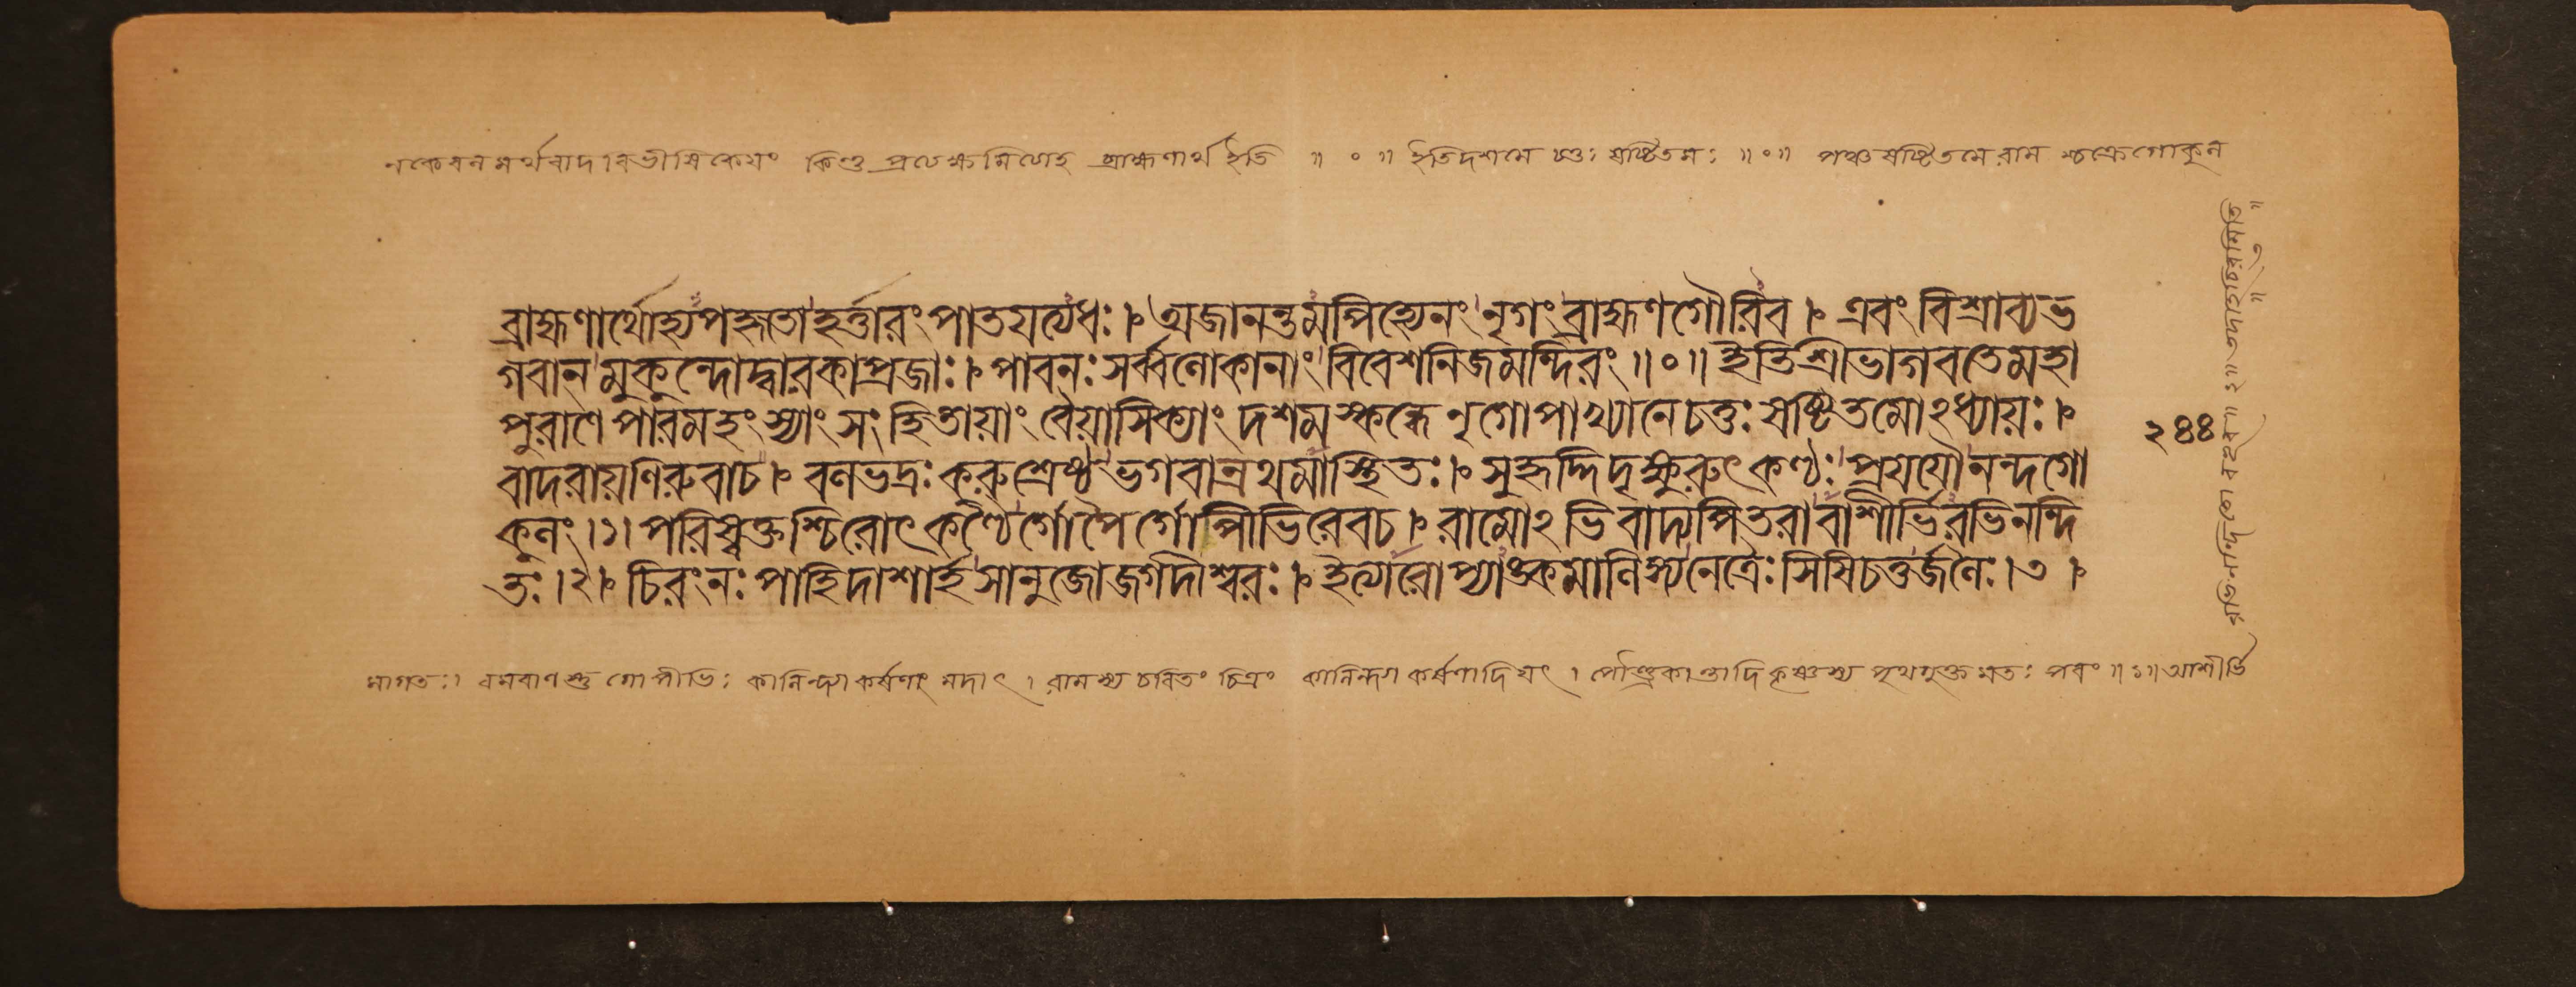 নকেবলমর্থবাদবিভীষিকেয়ং কিন্তু প্রত্যক্ষমিত্যাহ ব্রাহ্মণার্থ ইতি ॥ ० ॥ ইতিদশমে চতুঃষষ্টিতমঃ ॥ ० ॥ পঞ্চষষ্টিতমে রাম শ্চক্রেগোকুল
ব্রাহ্মণার্থোহ্যপহৃতোহর্ত্তারং পাতয়ত্যধঃ । অজানন্তমপিহ্যেনং নৃগং ব্রাহ্মণগৌরিব । এবং বিশ্রাব্যভ
গবান্ মুকুন্দোদ্বারকাপ্রজাঃ । পাবনঃ সর্ব্বলোকানাং বিবেশনিজমন্দিরং ॥ ० ॥ ইতিশ্রীভাগবতেমহা
পুরাণে পারমহংস্যাং সংহিতায়াং বৈয়াসিক্যাং দশমস্কন্ধে নৃগোপাখ্যানে চতুঃষষ্টিতমোঽধ্যায়ঃ ।
২৪৪
বাদরায়ণিরুবাচ । বলভদ্রঃ কুরুশ্রেষ্ঠ ভগবান্রথমাস্থিতঃ । সুহৃদ্দিদৃক্ষুরুৎকণ্ঠঃ প্রযযৌনন্দগো
কুলং । ১ । পরিষ্বক্তশ্চিরোৎকণ্ঠৈর্গোপৈর্গোপীভিরেবচ । রামোঽভিবাদ্যপিতরাবাশীর্ভিরভিনন্দি
তঃ । ২ । চিরংনঃ পাহিদাশার্হ সানুজোজগদীশ্বরঃ । ইত্যারোপ্যাঙ্কমালিঙ্গ্যনেত্রৈঃ সিষিচতুর্জলৈঃ । ৩ ।
মাগতঃ । রমমাণস্তু গোপীভিঃ কালিন্দ্যাকর্ষণং মদাৎ । রামস্য চরিতং চিত্রং কালিন্দ্যাকর্ষণাদিযৎ । পৌণ্ড্রকান্তাদি কৃষ্ণস্য পৃথগুক্ত মতঃ পরং ॥ ১ ॥ আশীর্ভি